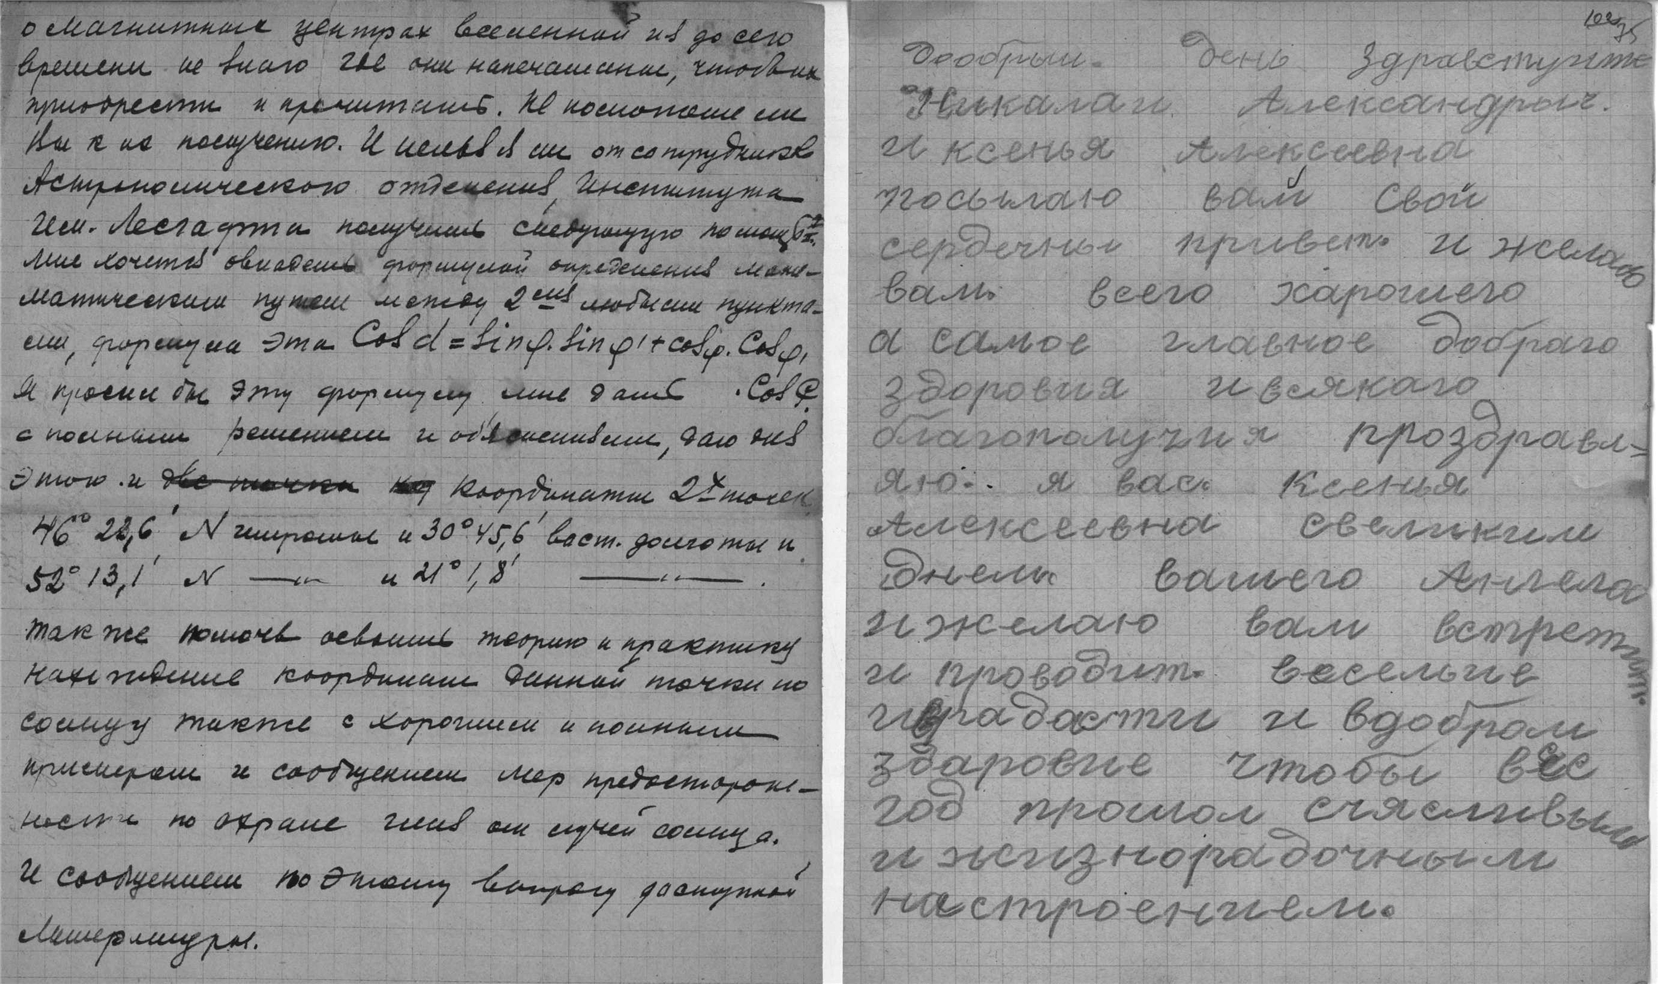 о магнитных центрах вселенной и я до сего
времени не знаю где они напечатаны, чтоб их
приобрести и прочитать. Не поможете ли
Вы к их получению. И нельзя ли от сотрудников
Астрономического отделения, Института
Им. Лесгафта получить следующую помощь
мне хочется овладеть формулой определения мате-
матическим путем между 2мя любыми пункта-
ми, формула эта Cos d = Sin φ. Sin φ' + cos φ. Cos φ,
Я просил бы эту формулу мне дать . Cos
с полным решением и объяснениям, даю для
этого и две точки координаты 2х точек
46° 28,6' N широты и 30° 45,6' вост. долготы и
52° 13,1' N —〃— и 21° 1,8' —〃— .
также помочь освоить теорию и практику
нахождение координат данной точки по
солнцу также с хорошим и полным
примером и сообщением мер предосторож-
ности по охране глаз от лучей солнца.
И сообщением по этому вопросу доступной
литературы.
Дообрый. День Здравствуите
Никалаи Александрыч.
и ксенья Алексеевна
посылаю вам свой
сердечны привет. и желаю
вам. всего харошего
а самое главное добраго
здоровия и всякаго
благополучия проздравл=
яю. я вас. Ксенья
Алексеевна свеликим
днем. вашего Ангела
и желаю вам встретит.
и проводит. веселые
и врадасти и вдобром
здаровие чтобы весс
год прошол счясливым
и жизнорадочным
настроением.